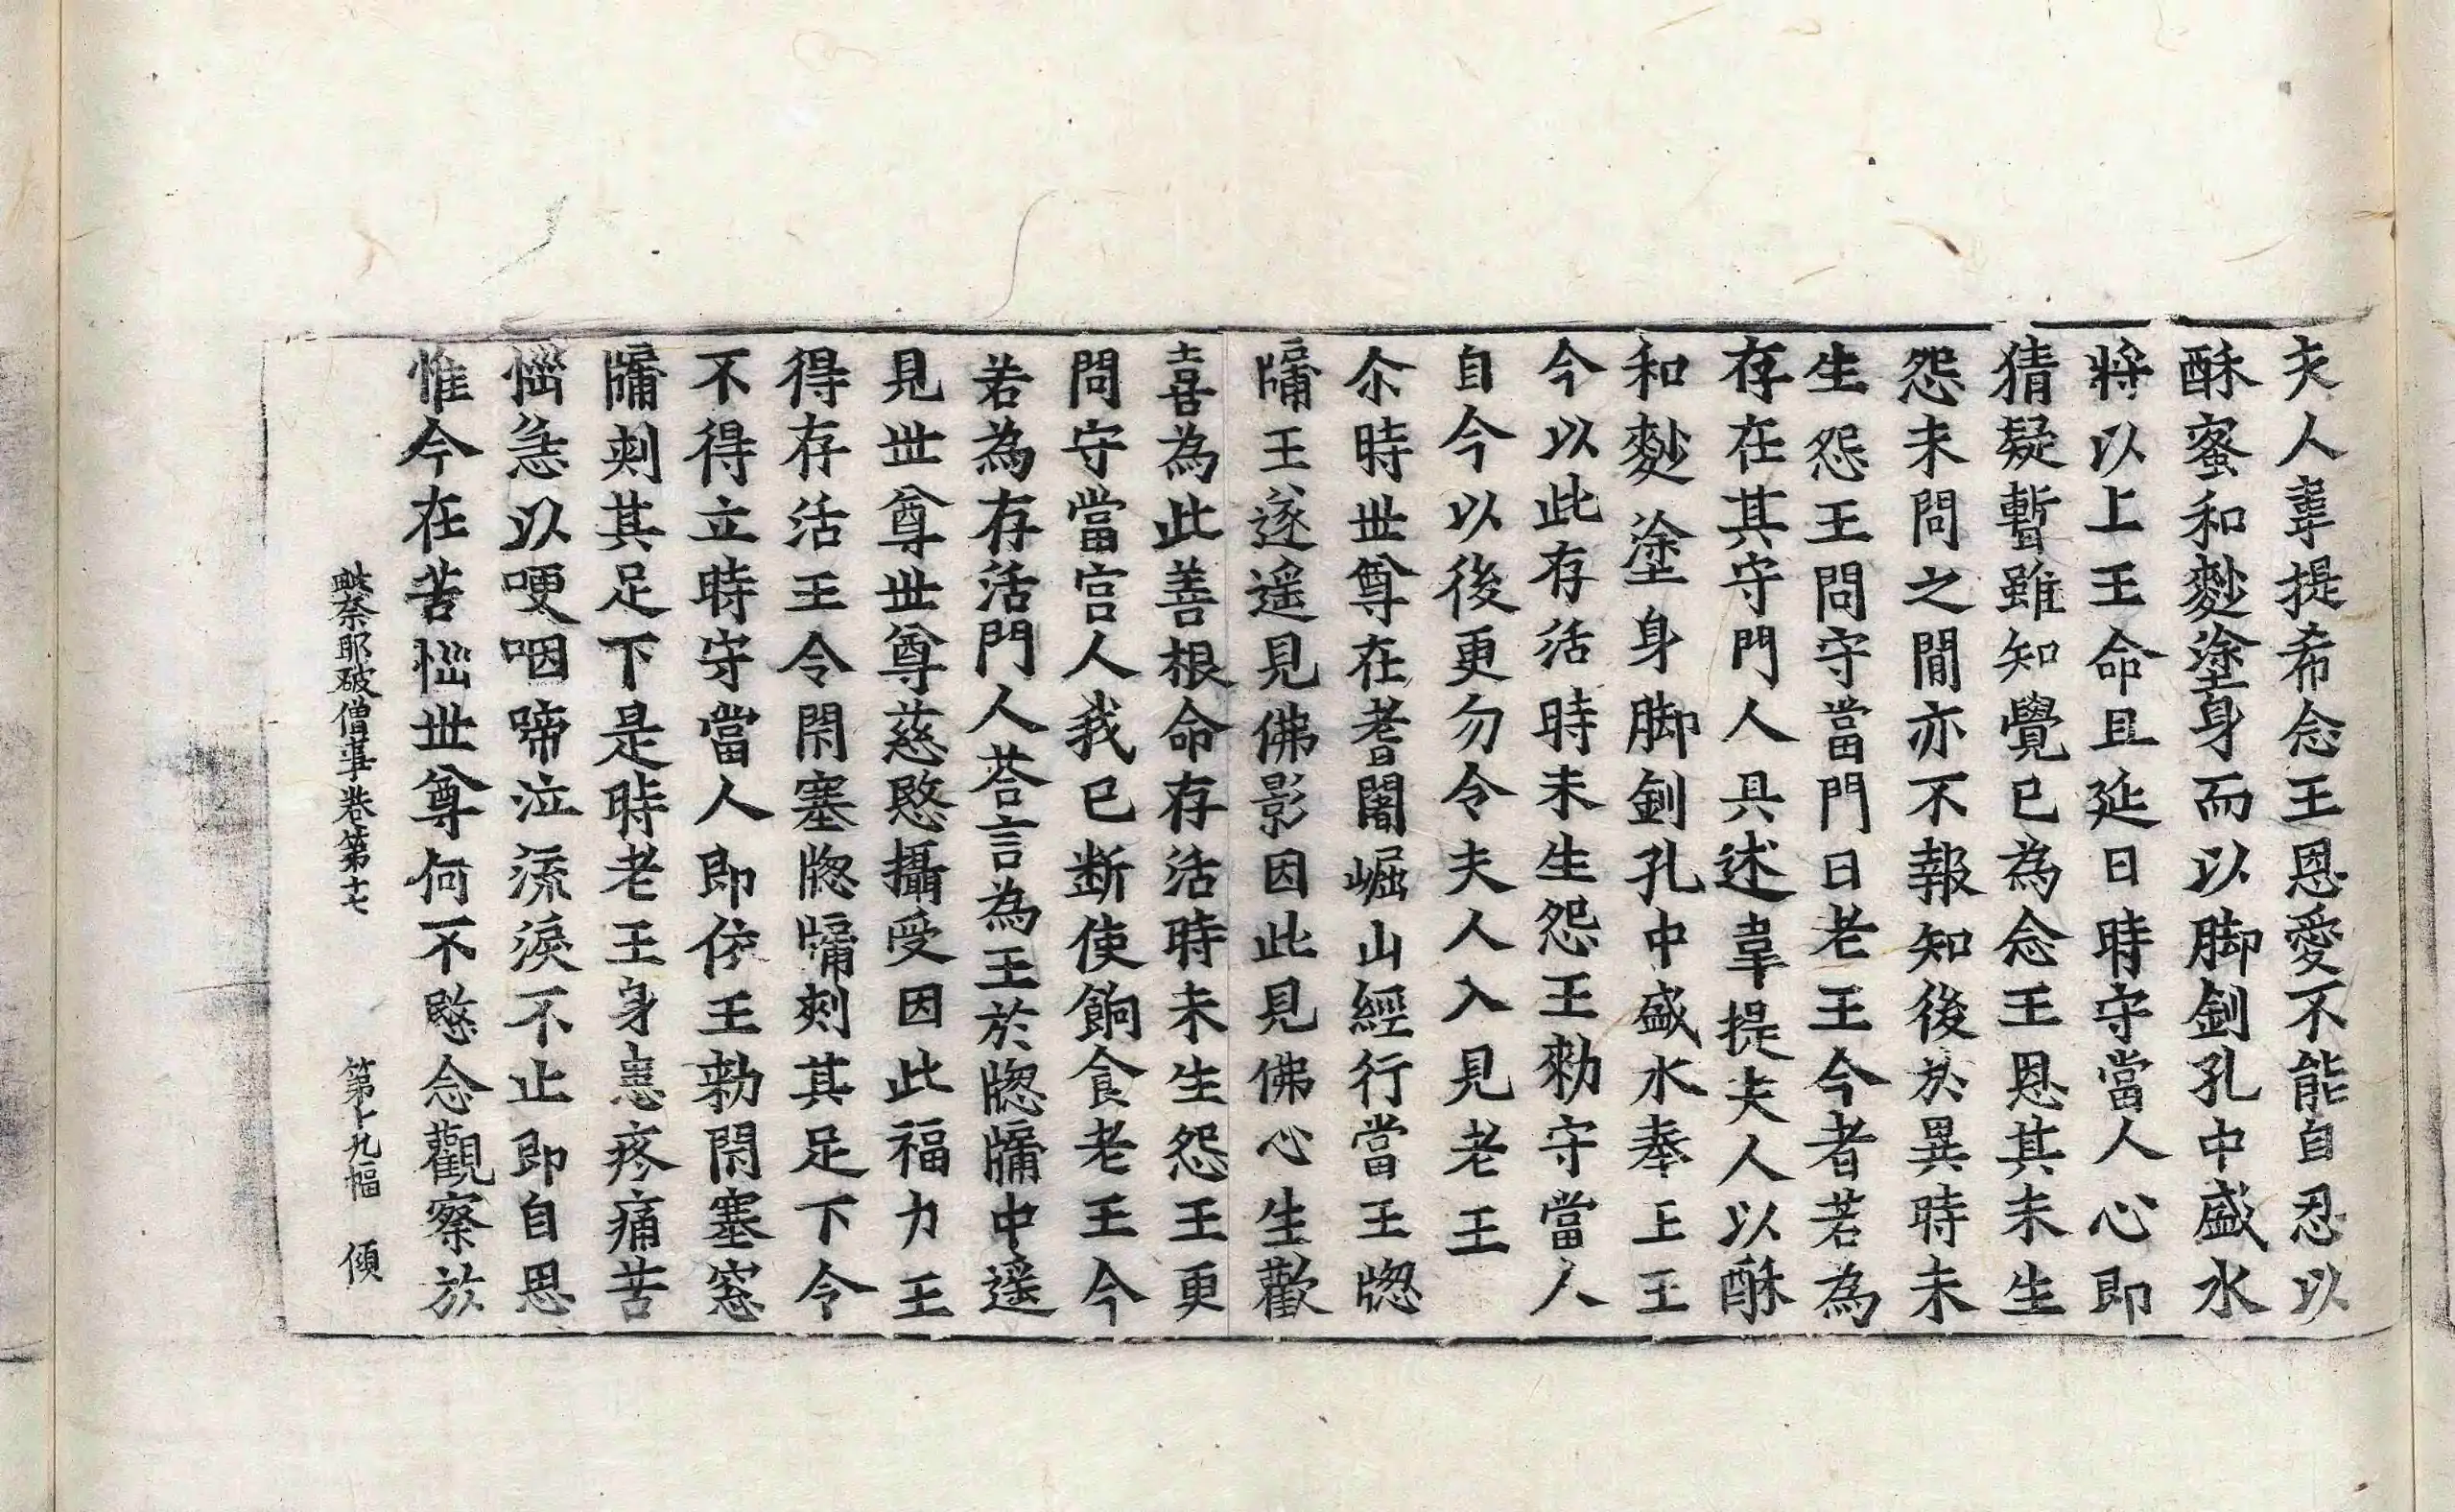 夫人韋提希念王恩愛不能自忍以
酥蜜和麨塗身而以脚釧孔中盛水
將以上王命且延日時守當人心即
猜疑暫雖知覺已為念王恩其未生
怨未問之間亦不報知後於異時未
生怨王問守當門曰老王今者若為
存在其守門人具述韋提夫人以酥
和麨塗身脚釧孔中盛水奉上王
今以此存活時未生怨王勑守當人
自今以後更勿令夫人入見老王
尒時世尊在耆闍崛山經行當王牕
牖王遂遥見佛影因此見佛心生歡
喜為此善根命存活時未生怨王更
問守當宫人我已断使餉食老王今
若為存活門人荅言為王於牕牖中遥
見世尊世尊慈愍攝受因此福力王
得存活王令閇塞牕牖刾其足下令
不得立時守當人即依王勑閇塞窓
牖刾其足下是時老王身患疼痛苦
惱急以哽咽啼泣流淚不止即自思
惟今在苦惱世尊何不愍念觀察於
毗奈耶破僧事卷第十七 第十九幅 傾